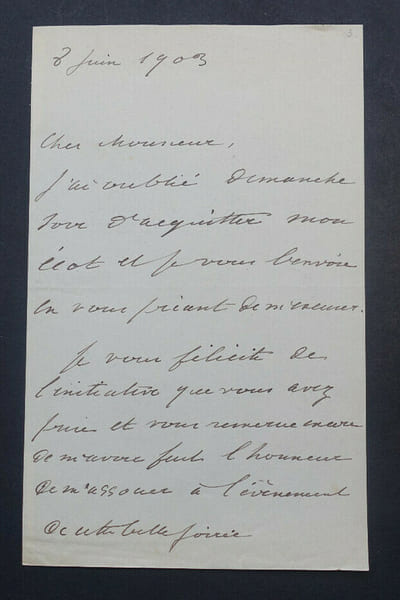 8 juin 1903
Cher Monsieur,
j'ai oublié dimanche
soir d'acquitter mon
écot et je vous l'envoie
en vous priant de m'excuser.
Je vous félicite de
l'initiative que vous avez
prise et vous remercie encore
de m'avoir fait l'honneur
de m'associer à l'évènement
de cette belle soirée